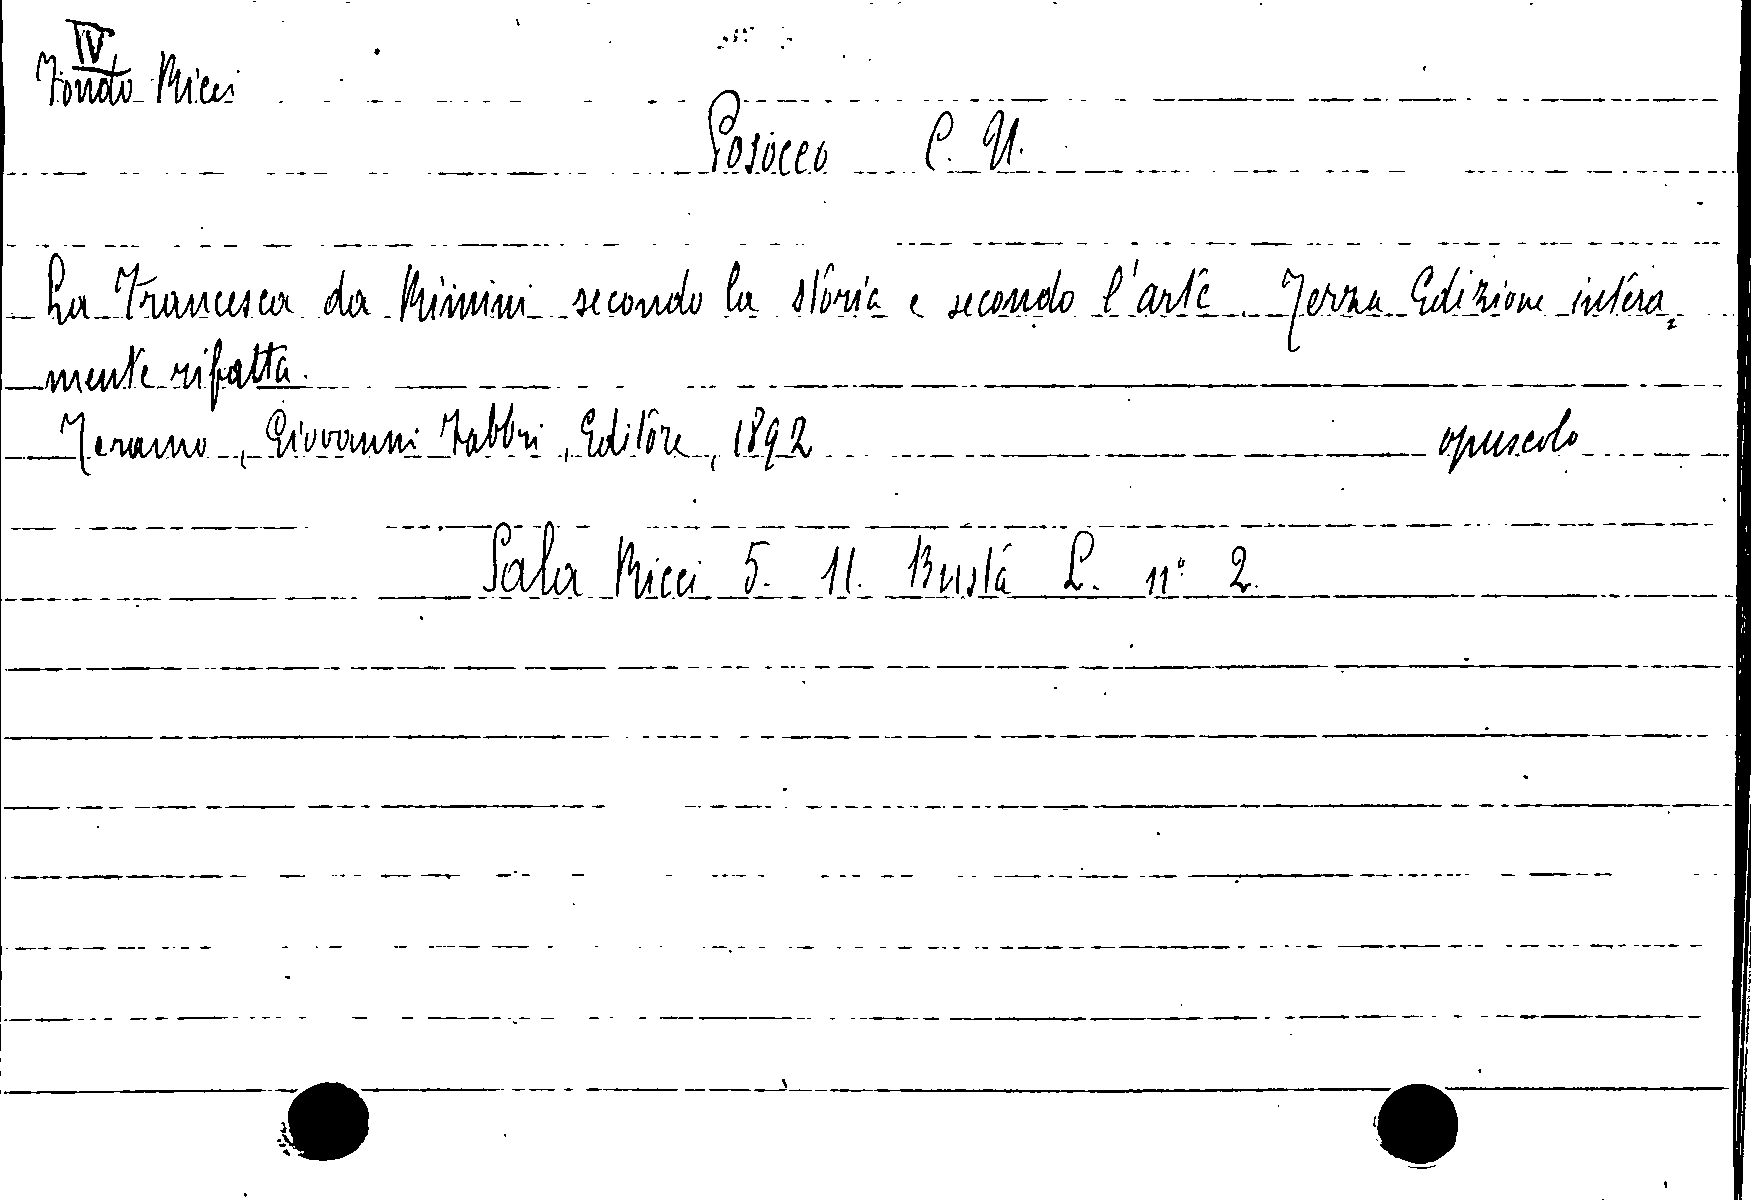 IV
Fondo Ricci
Posocco C. U.
La Francesca da Rimini secondo la storia e secondo l'arte. Terza Edizione intera=
mente rifatta.
Teramo, Giovanni Fabbri, Editore, 1892 opuscolo
Sala Ricci 5. 11. Busta L. n° 2.